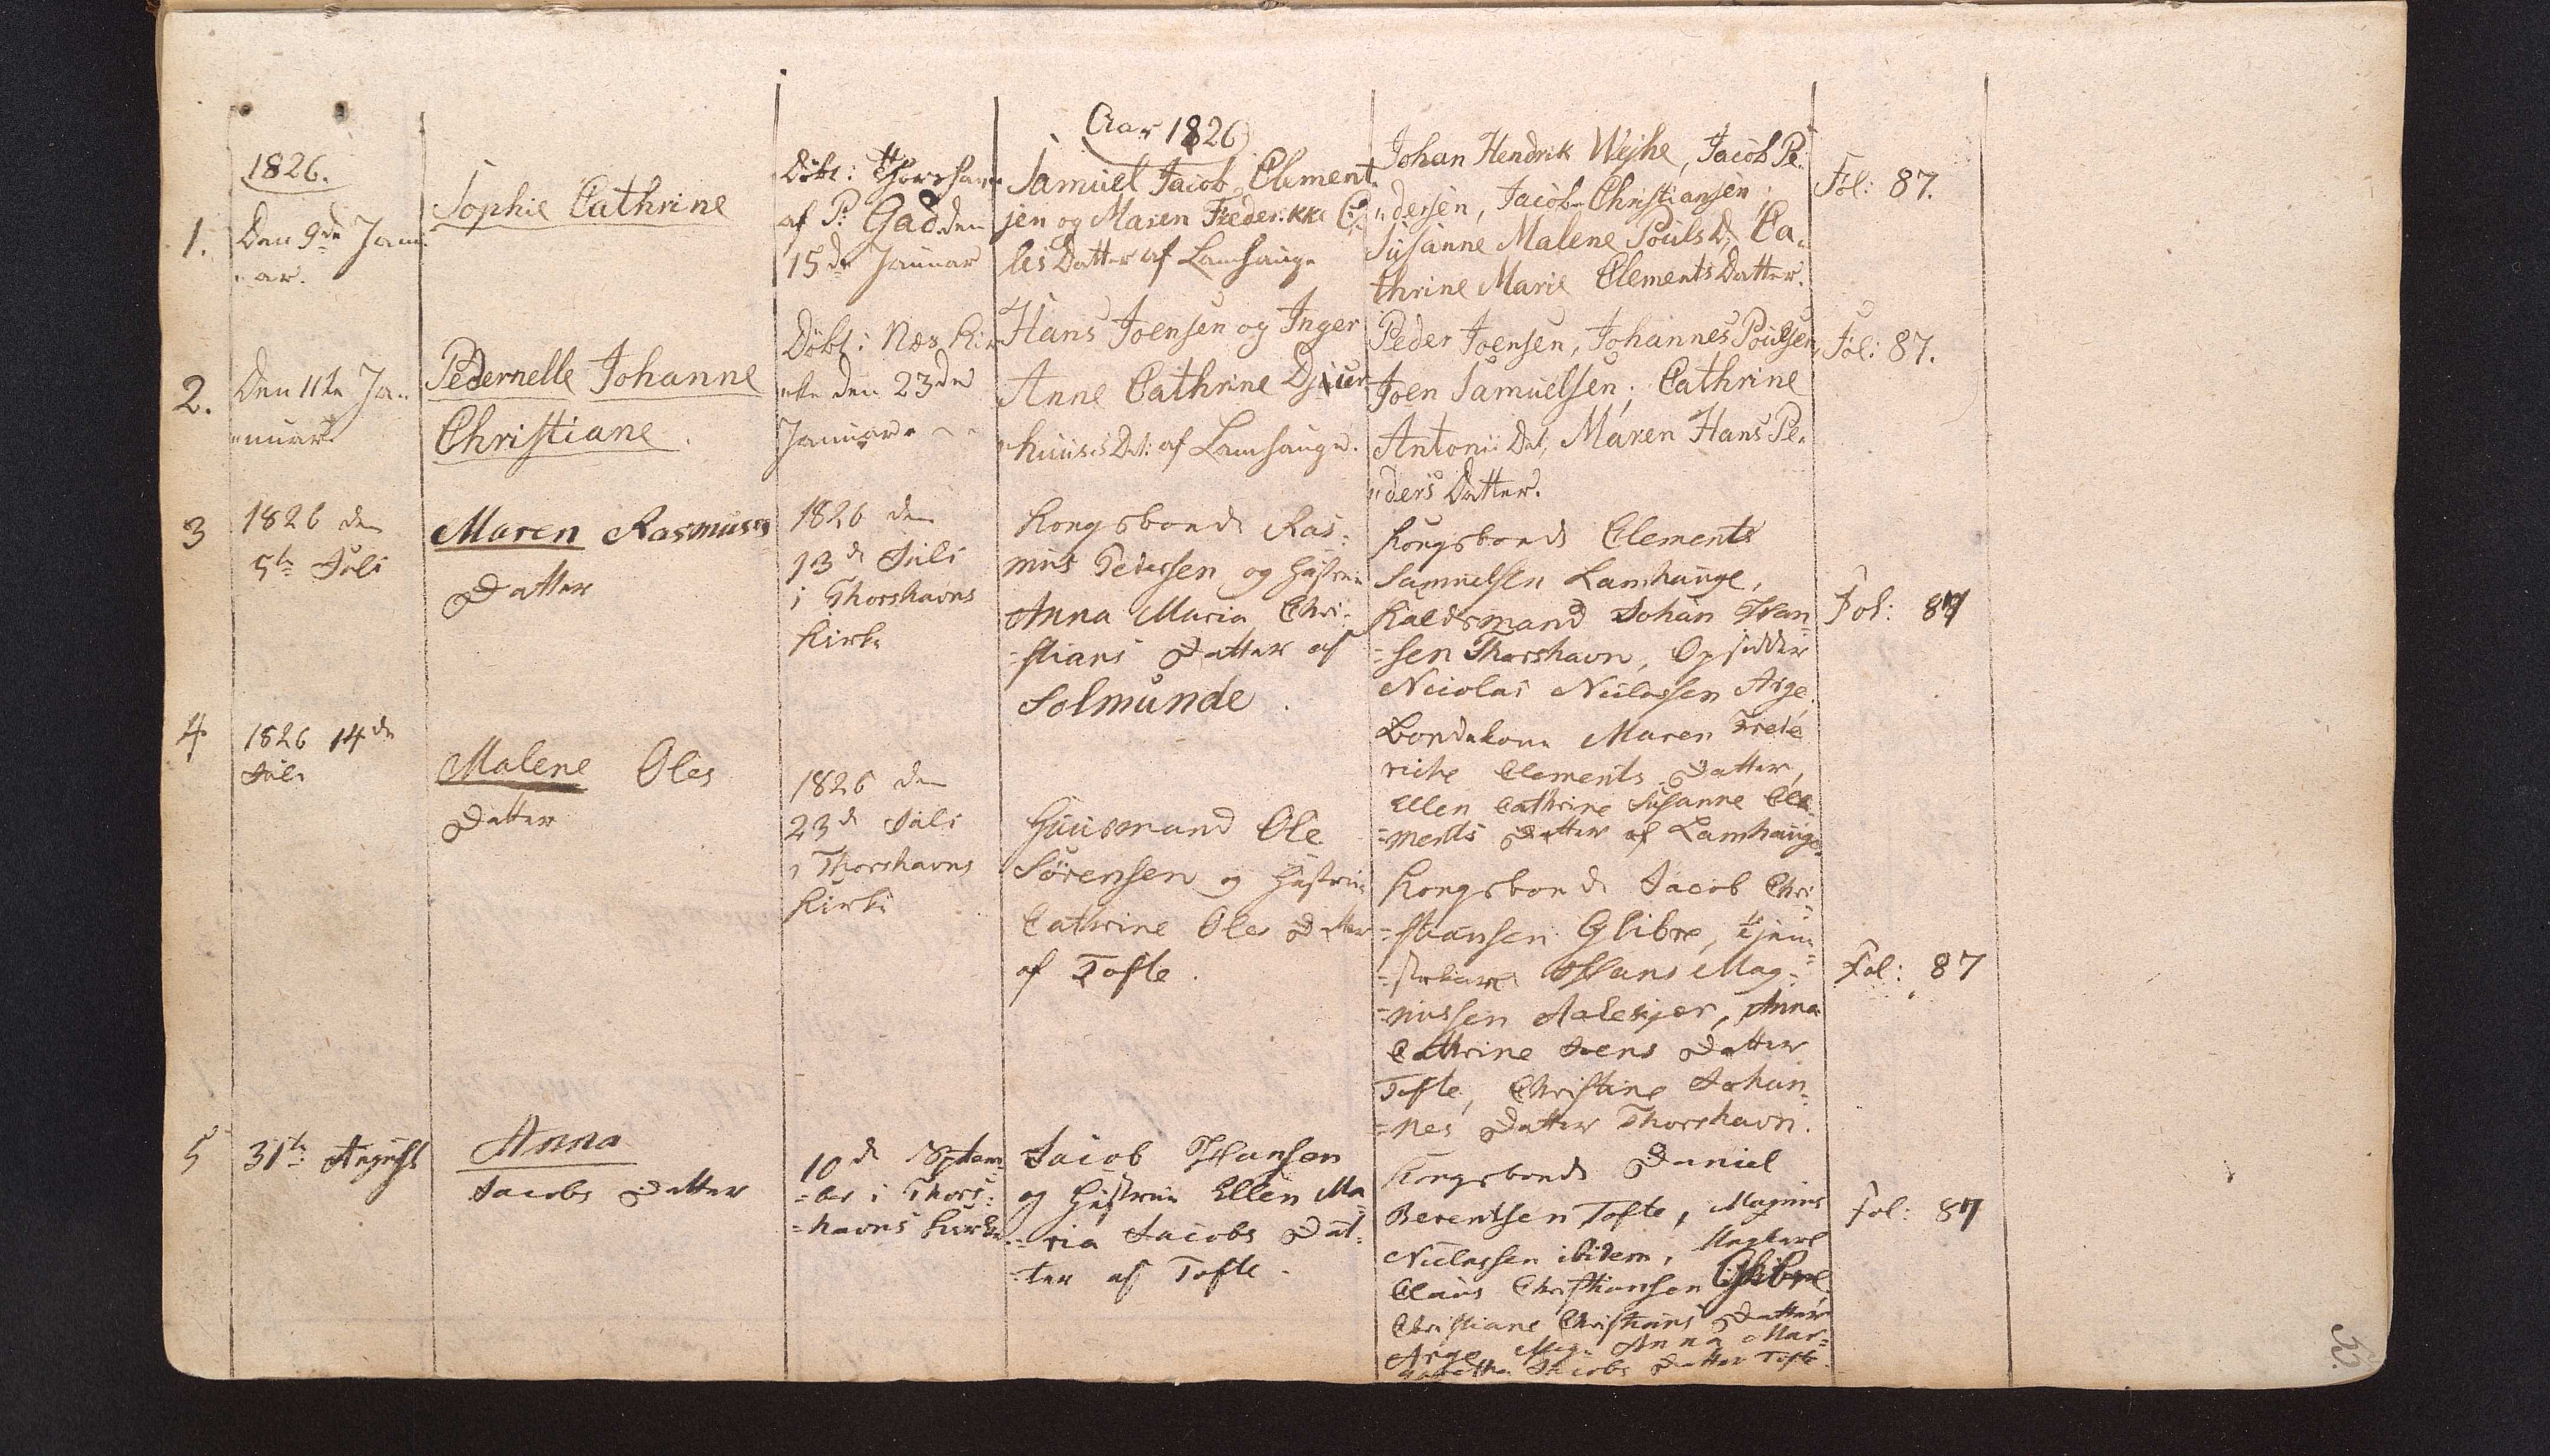 Aar 1826
1826.
1.
Den 9de Janu
ar.
Sophie Cathrine
Döbt i Thorshavn
af P: Gad den
15de Januar
Samuel Jacob Clement
sen og Maren Frederikke
les Datter af Lamhauge
Johan Hendrik Weihe, Jacob Pe
dersen, Jacob Christiansen;
Susanne Malene Pouls D, Ca
thrine Marie Clements Datter.
Fol: 87.
2.
Den 11te Ja
nuar
Pedernelle Johanne
Christiane.
Döbt i Næs Kir
ke den 23de
Januar
Hans Joensen og Inger
Anne Cathrine Djur
huuses Dat: af Lamhauge.
Peder Joensen, Johannes Poulsen,
Joen Samuelsen; Cathrine
Antonii Dat, Maren Hans Pe
ders Datter.
Fol: 87.
3
1826 den
5te Juli
Maren Rasmuses
Datter
1826 den
13de Juli
i Thorshavns
Kirke
Kongsbonde Ras
mus Pedersen og Hustrue
Anna Maria Chri
=stians Datter af
Solmunde.
Kongsbonde Clement
Samuelsen Lamhauge,
Johan Han
=sen Thorshavn, Opsidder
Nicolai Niclassen Arge,
Bondekone Maren Frede
riche Clements Datter,
Ellen Cathrine Susanne Cle
=ments Datter af Lamhauge.
Fol: 87
4
1826 14de
Juli
Malene Oles
Datter
1826 den
23de Juli
i Thorshavns
Kirke
Huusmand Ole
Sörensen og Hustrue
Cathrine Oles Datter
af Tofte.
Kongsbonde Jacob Chri
=stiansen Glibre, Tjene
=stekarl Hans Mag
=nussen Aalekjer, Anna
Cathrine Joens Datter
Tofte, Christine Johan
=nes Datter Thorshavn.
Fol: 87
5
31te August
Anna
Jacobs Datter
10de Septem
=ber i Thors
=havns Kirke
Jacob Hansen
og Hustrue Ellen Ma
=ria Jacobs Dat
=ter af Tofte.
Kongsbonde Daniel
Berentsen Tofte, Magnus
Niclassen ibidem,
Claus Christiansen Glibre,
Christiane Christians Datter
Arge, Anna Mar=
gretha Jacobs Datter Tofte.
Fol: 87